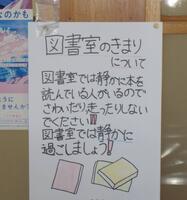 なのかも
図書室のきまり
について
図書室では静かに本を
読んでいる人がいるので
さわいだり走ったりしない
でください!!
図書室では静かに
過ごしましょう!
ように
ませんか?